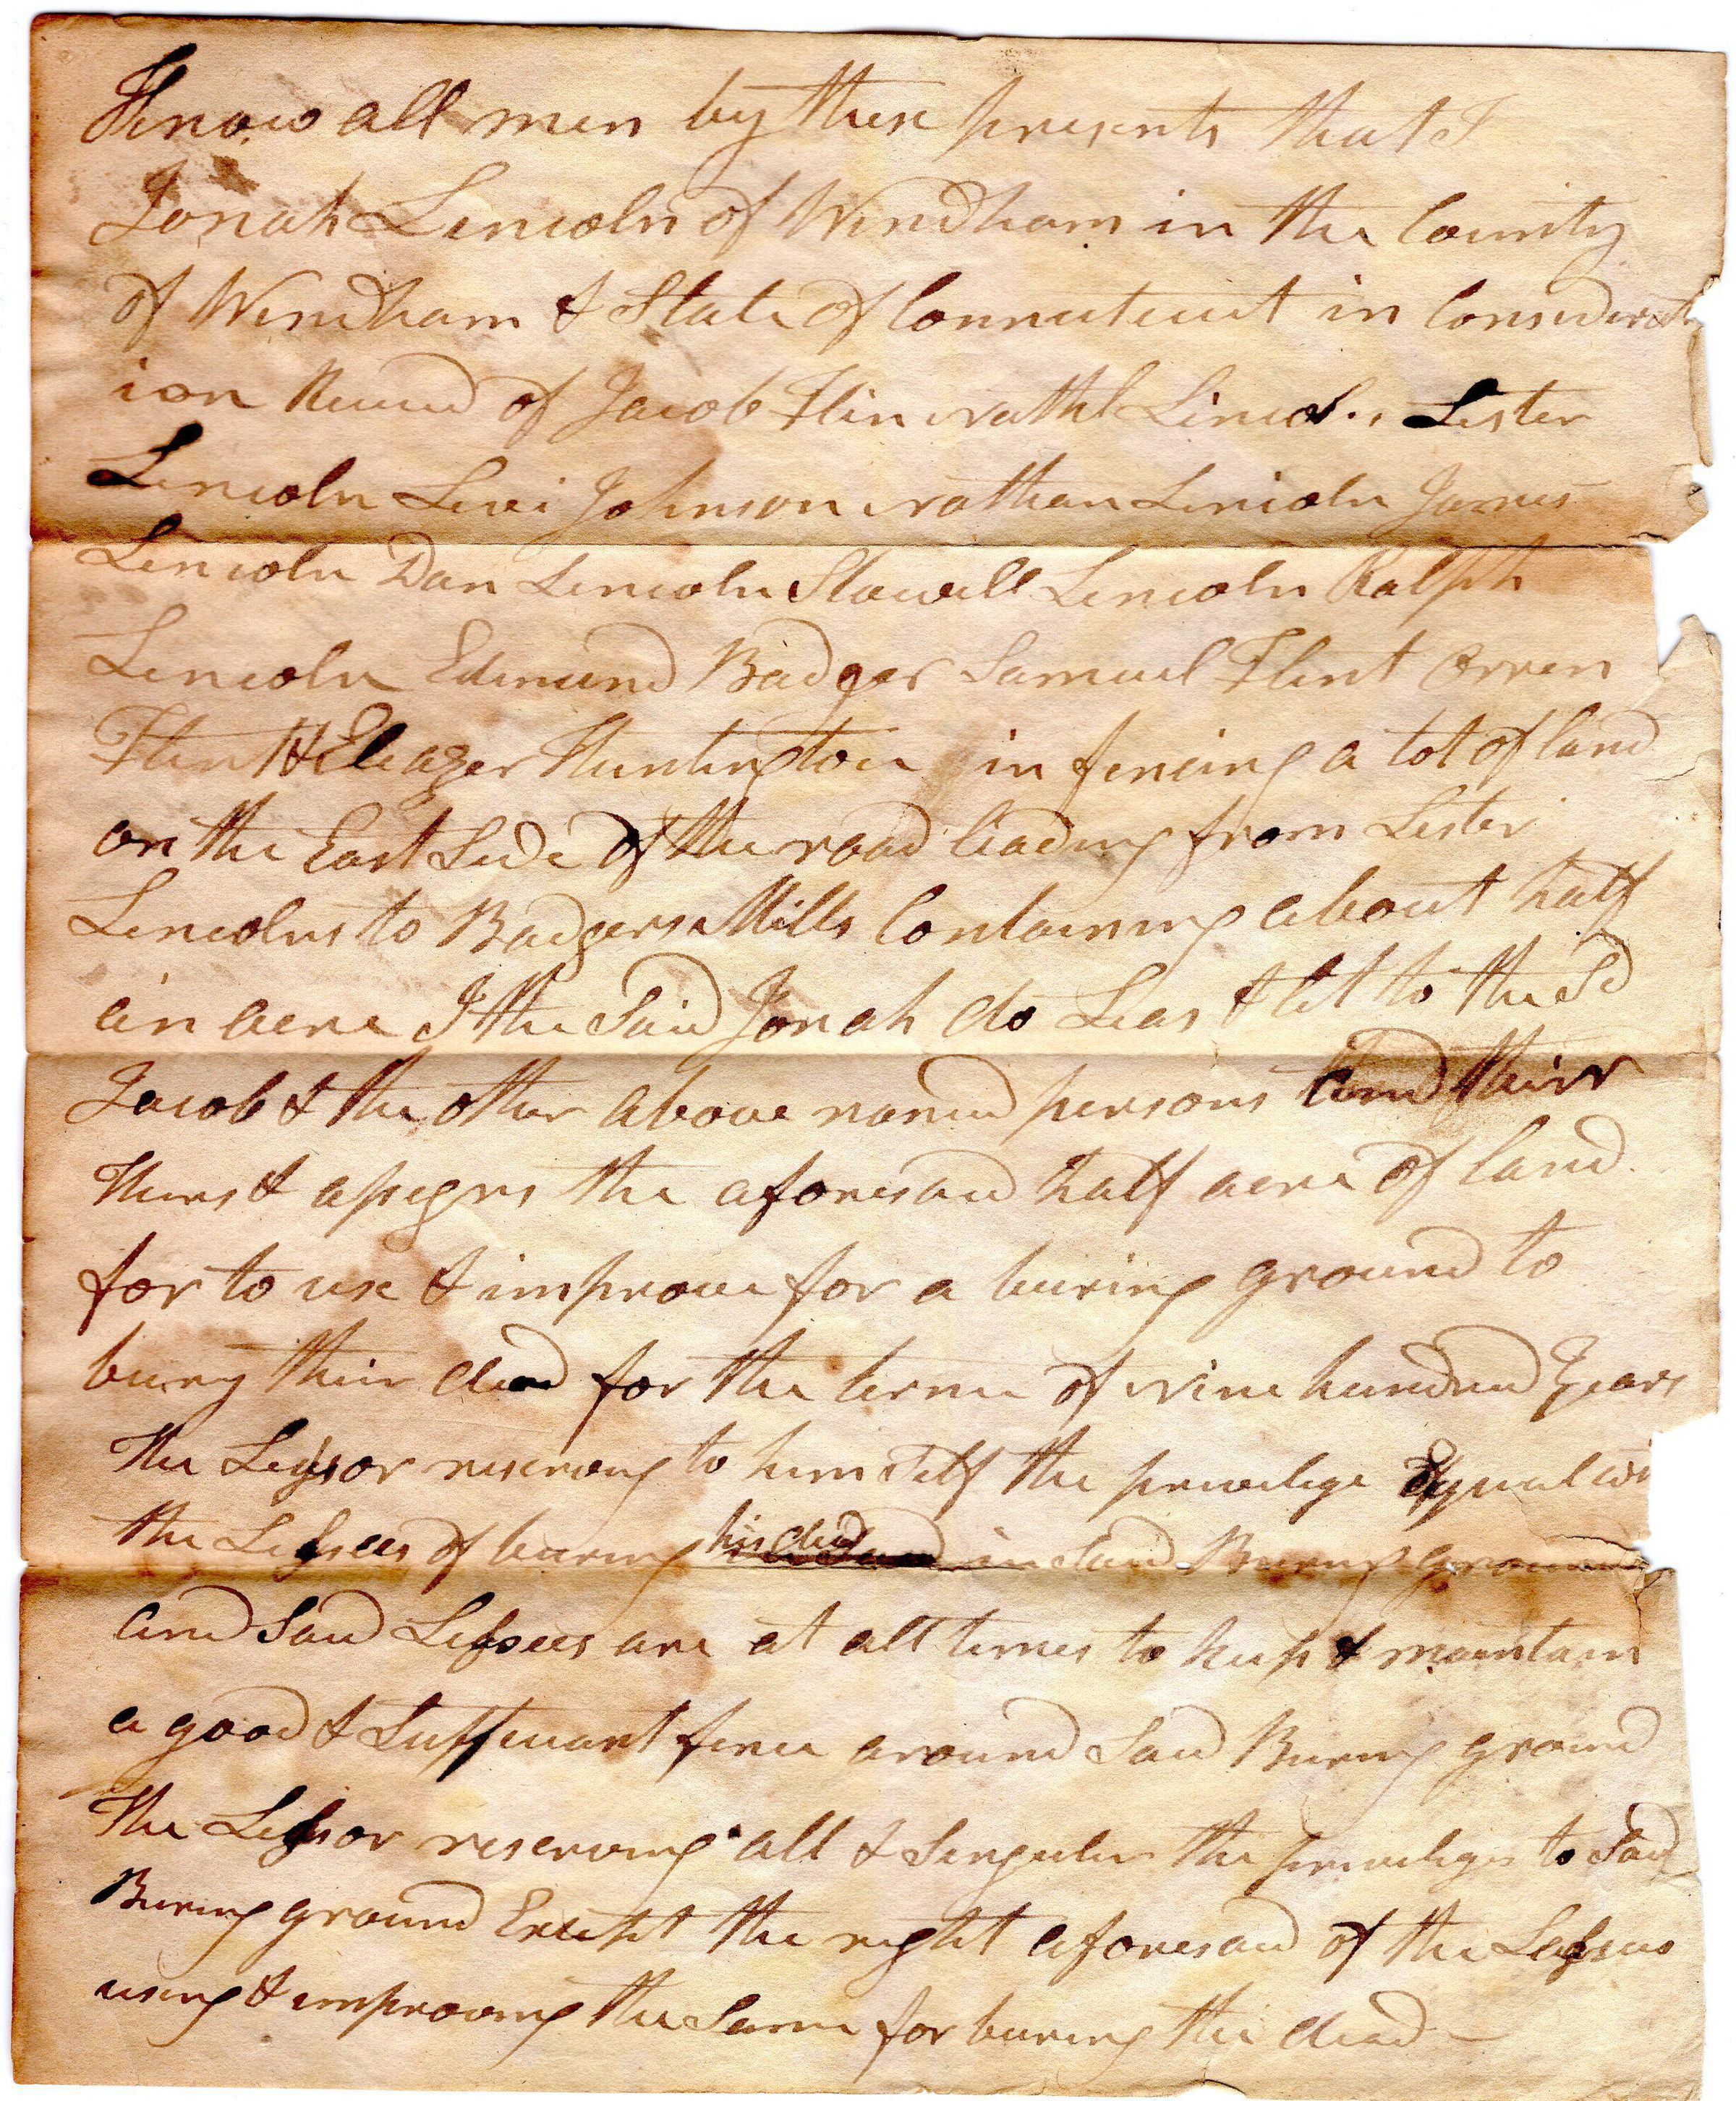 Know all men by these presents that I
Jonah Lincoln of Windham in the County
of Windham & State of Connecticut in Considerat
ion Receved of Jacob Flin Nathl Lincol Lester
Lincoln Levi Johnson Nathan Lincoln James
Lincoln Dan Lincoln Stowell Lincoln Ralph
Lincoln Edmund Badger Samuel Flint Orren
Flint & Eleazer Huntington in fencing a lot of land
on the East Side of the road leading from Lester
Lincolns to Badgers Mills Containing about half
an acre I the Said Jonah do Leas & let to the Sd
Jacob & the other above named persons and thier
Heirs & assigns the aforesaid half acre of land
for to use & improve for a buring ground to
bury their dead for the terme of Nine hundred Years
The Lessor reserving to himself the priviledge Equal wi
the Lessees of buring his dead in Said Buring ground
and Said Lessees are at all times to keep & maintain
a good & Suffiuant fence around Said Buring ground
The Lessor reserving all & Singuler the priviliges to Said
Buring ground Except the right aforesaid of the Lessees
using & improoving the Same for buring the dead —